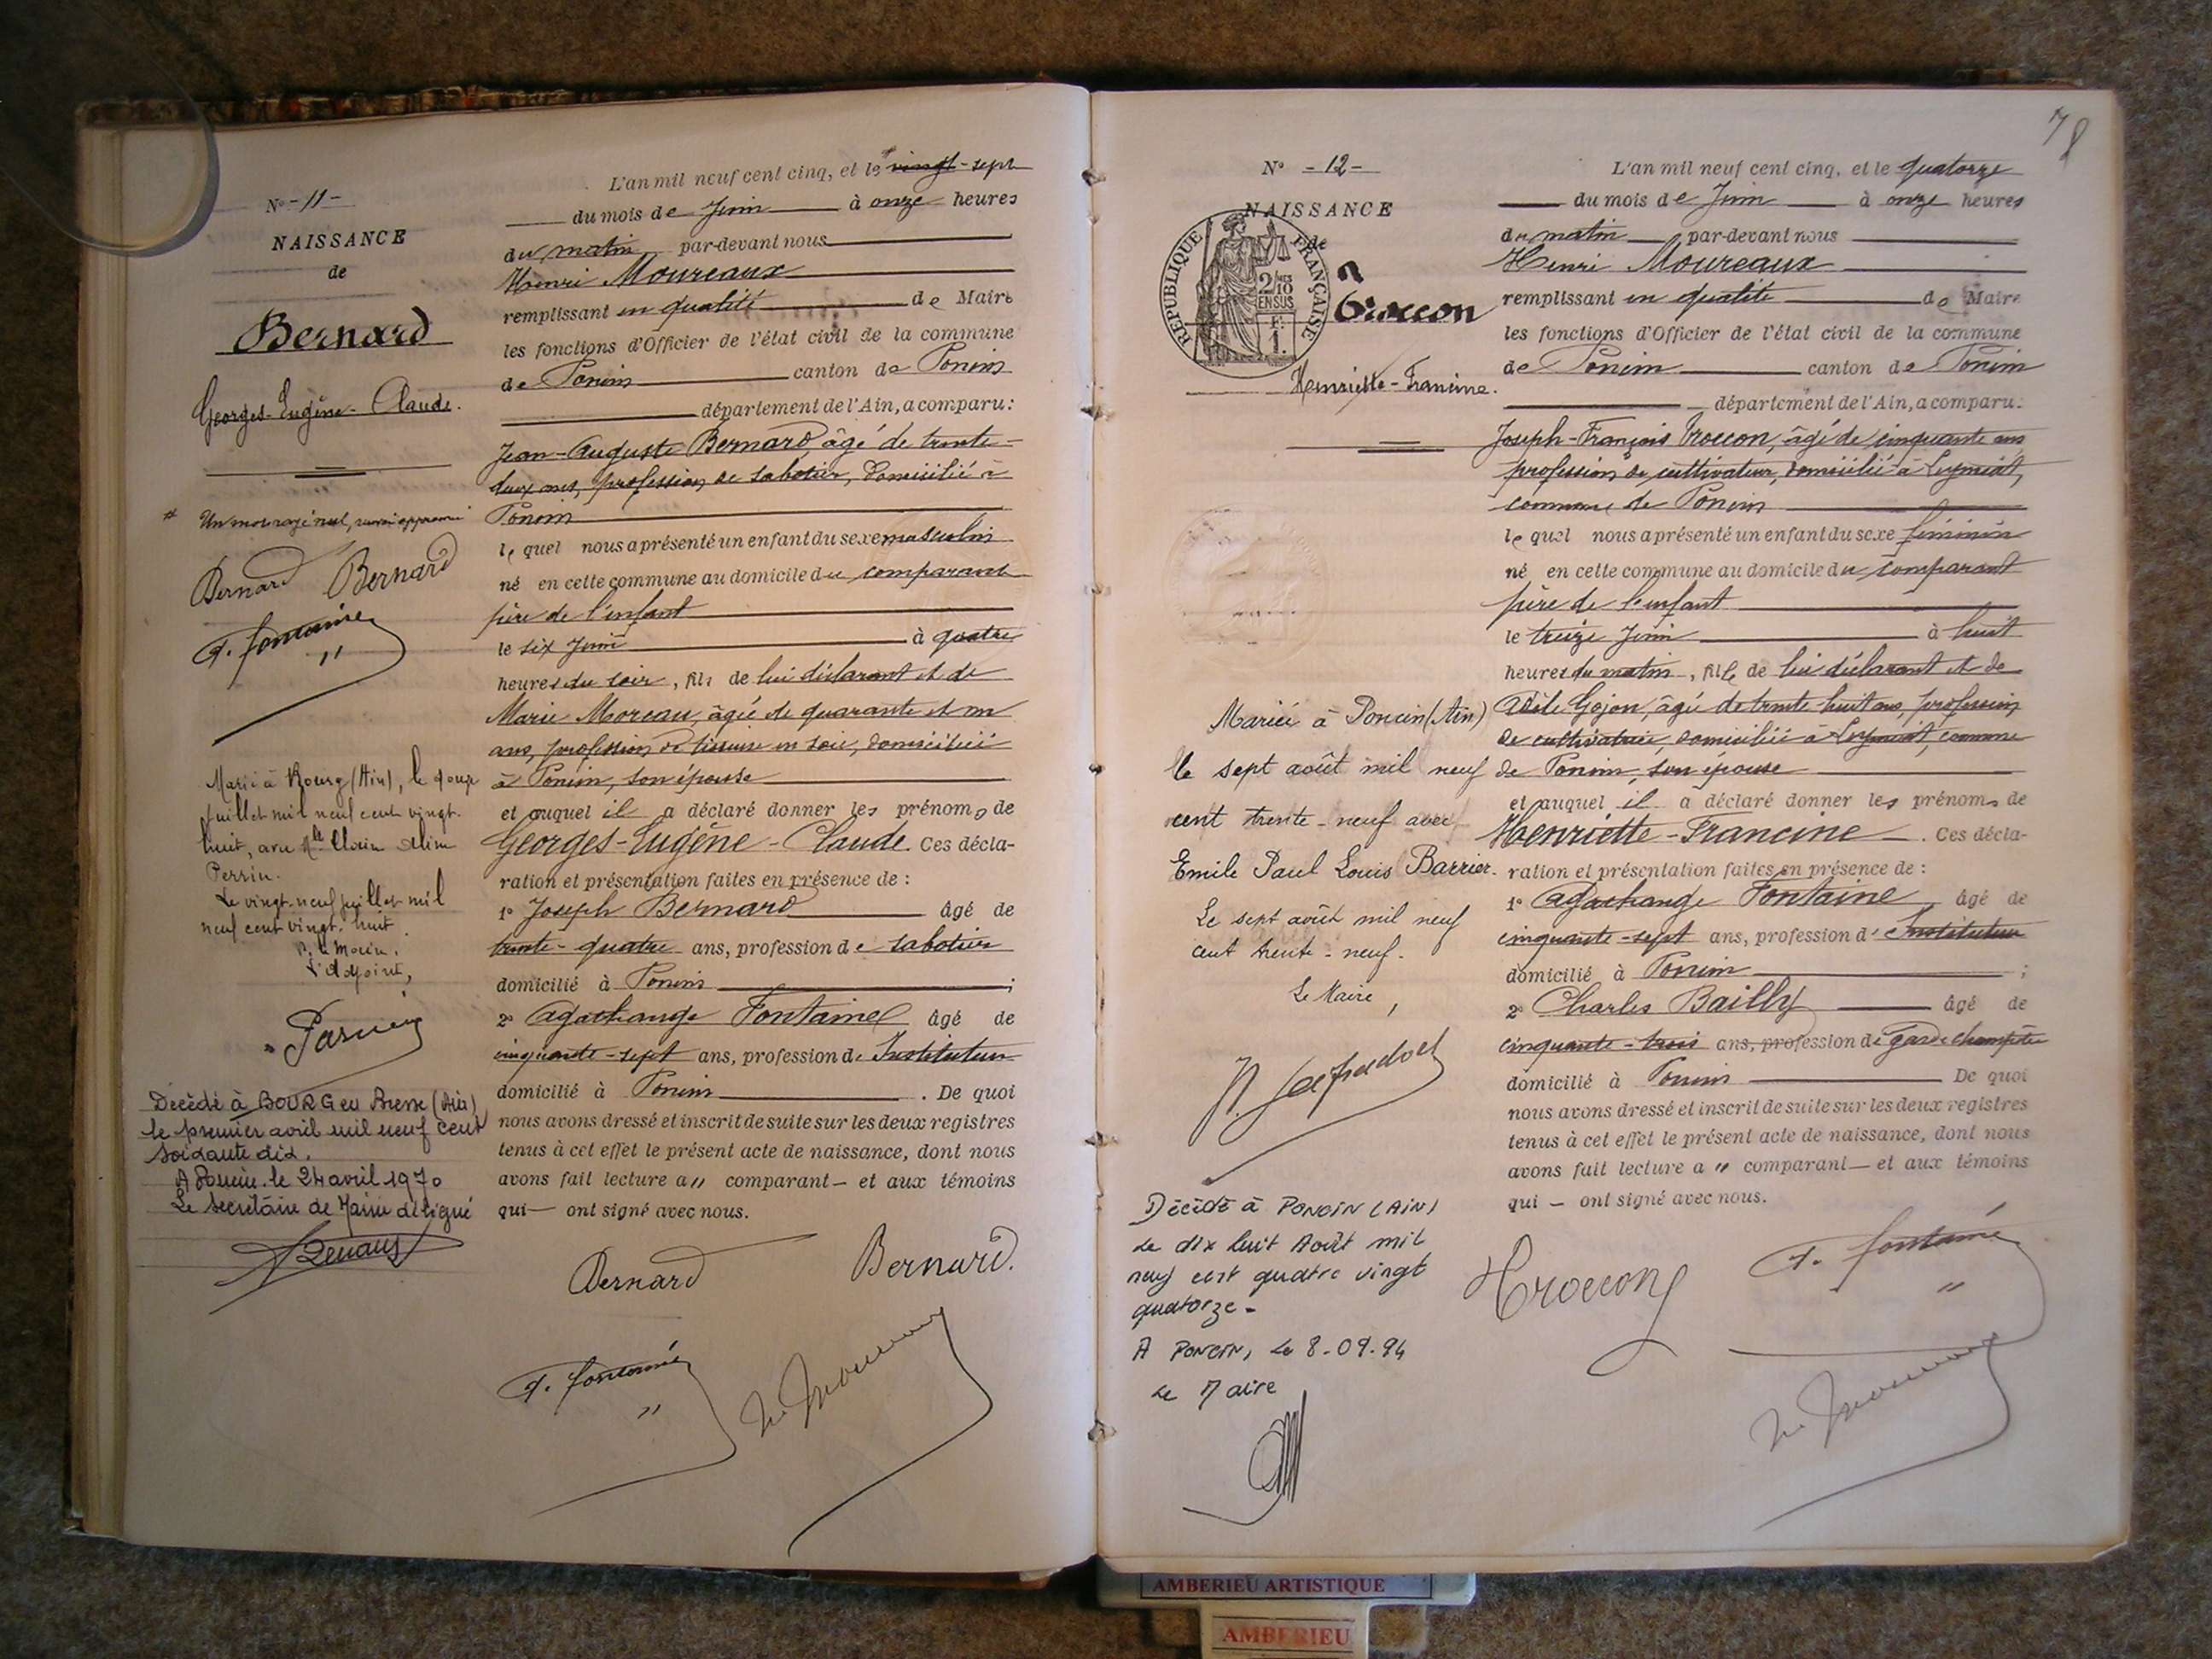 N° - 11 -
NAISSANCE
de
Bernard
Georges-Eugène-Claude.
* Un mot rayé nul, renvoi approuvé
Bernard Bernard
A. Fontaine
Marié à Bourg (Ain), le douze
juillet mil neuf cent vingt-
huit, avec Mlle
Perrin.
Le vingt-neuf juillet mil
neuf cent vingt-huit.
P. le Maire,
L'adjoint,
Décédé à BOURG en Bresse (Ain)
le premier avril mil neuf cent
soixante dix.
A Poncin. le 24 avril 1970
Le secrétaire de Mairie délégué
L'an mil neuf cent cinq, et le * vingt-sept
du mois de Juin à onze heures
du matin par-devant nous
Henri Moureaux
remplissant en qualité de Maire
les fonctions d'Officier de l'état civil de la commune
de Poncin canton de Poncin
département de l'Ain, a comparu:
Jean-Auguste Bernard, âgé de trente-
deux ans, profession de sabotier, domicilié à
Poncin
le quel nous a présenté un enfant du sexe masculin
né en cette commune au domicile du comparant
père de l'enfant
le six Juin à quatre
heures du soir, fils de lui déclarant et de
Marie Moreau, âgée de quarante et un
ans, profession de tisseuse en soie, domiciliée
à Poncin, son épouse
et auquel il a déclaré donner les prénoms de
Georges-Eugène-Claude. Ces décla-
ration et présentation faites en présence de :
1° Joseph Bernard âgé de
trente-quatre ans, profession de sabotier
domicilié à Poncin ;
2° Agathange Fontaine âgé de
cinquante-sept ans, profession d'Instituteur
domicilié à Poncin. De quoi
nous avons dressé et inscrit de suite sur les deux registres
tenus à cet effet le présent acte de naissance, dont nous
avons fait lecture au comparant — et aux témoins
qui — ont signé avec nous.
Bernard Bernard.
A. Fontaine
78
N° - 12 -
NAISSANCE
de
RÉPUBLIQUE FRANÇAISE
2/10
EN SUS
1.
Troccon
Henriette-Francine.
Mariée à Poncin (Ain)
le sept août mil neuf
cent trente-neuf avec
Emile Paul Louis Barrier.
Le sept août mil neuf
cent trente-neuf.
Le Maire,
Décédé à PONCIN (AIN)
Le dix huit Août mil
neuf cent quatre vingt
quatorze -
A PONCIN, Le 8-09-94
Le Maire
L'an mil neuf cent cinq, et le quatorze
du mois de Juin à onze heures
du matin par-devant nous
Henri Moureaux
remplissant en qualité de Maire
les fonctions d'Officier de l'état civil de la commune
de Poncin canton de Poncin
département de l'Ain, a comparu:
Joseph-François Troccon, âgé de cinquante ans
profession de cultivateur, domicilié à Leymiat,
commune de Poncin
le quel nous a présenté un enfant du sexe féminin
né en cette commune au domicile du comparant
père de l'enfant
le treize Juin à huit
heures du matin, fille de lui déclarant et de
Adèle Gojon, âgée de trente-huit ans, profession
de cultivatrice, domiciliée à Leymiat, commune
de Poncin, son épouse
et auquel il a déclaré donner les prénoms de
Henriette-Francine. Ces décla-
ration et présentation faites en présence de :
1° Agathange Fontaine, âgé de
cinquante-sept ans, profession d'Instituteur
domicilié à Poncin ;
2° Charles Bailly âgé de
cinquante-trois ans, profession de garde champêtre
domicilié à Poncin De quoi
nous avons dressé et inscrit de suite sur les deux registres
tenus à cet effet le présent acte de naissance, dont nous
avons fait lecture au comparant — et aux témoins
qui — ont signé avec nous.
Troccon A. Fontaine
AMBERIEU ARTISTIQUE
AMBERIEU